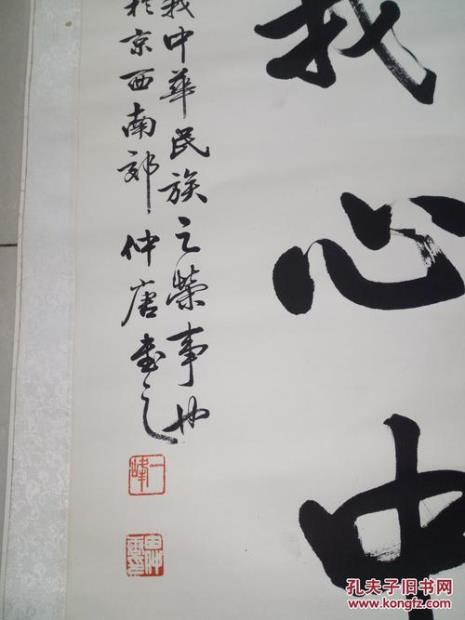 我心中
我中华民族之荣事也
于京西南郊仲唐书之
一峰
孔夫子旧书网
www.kongfz.com